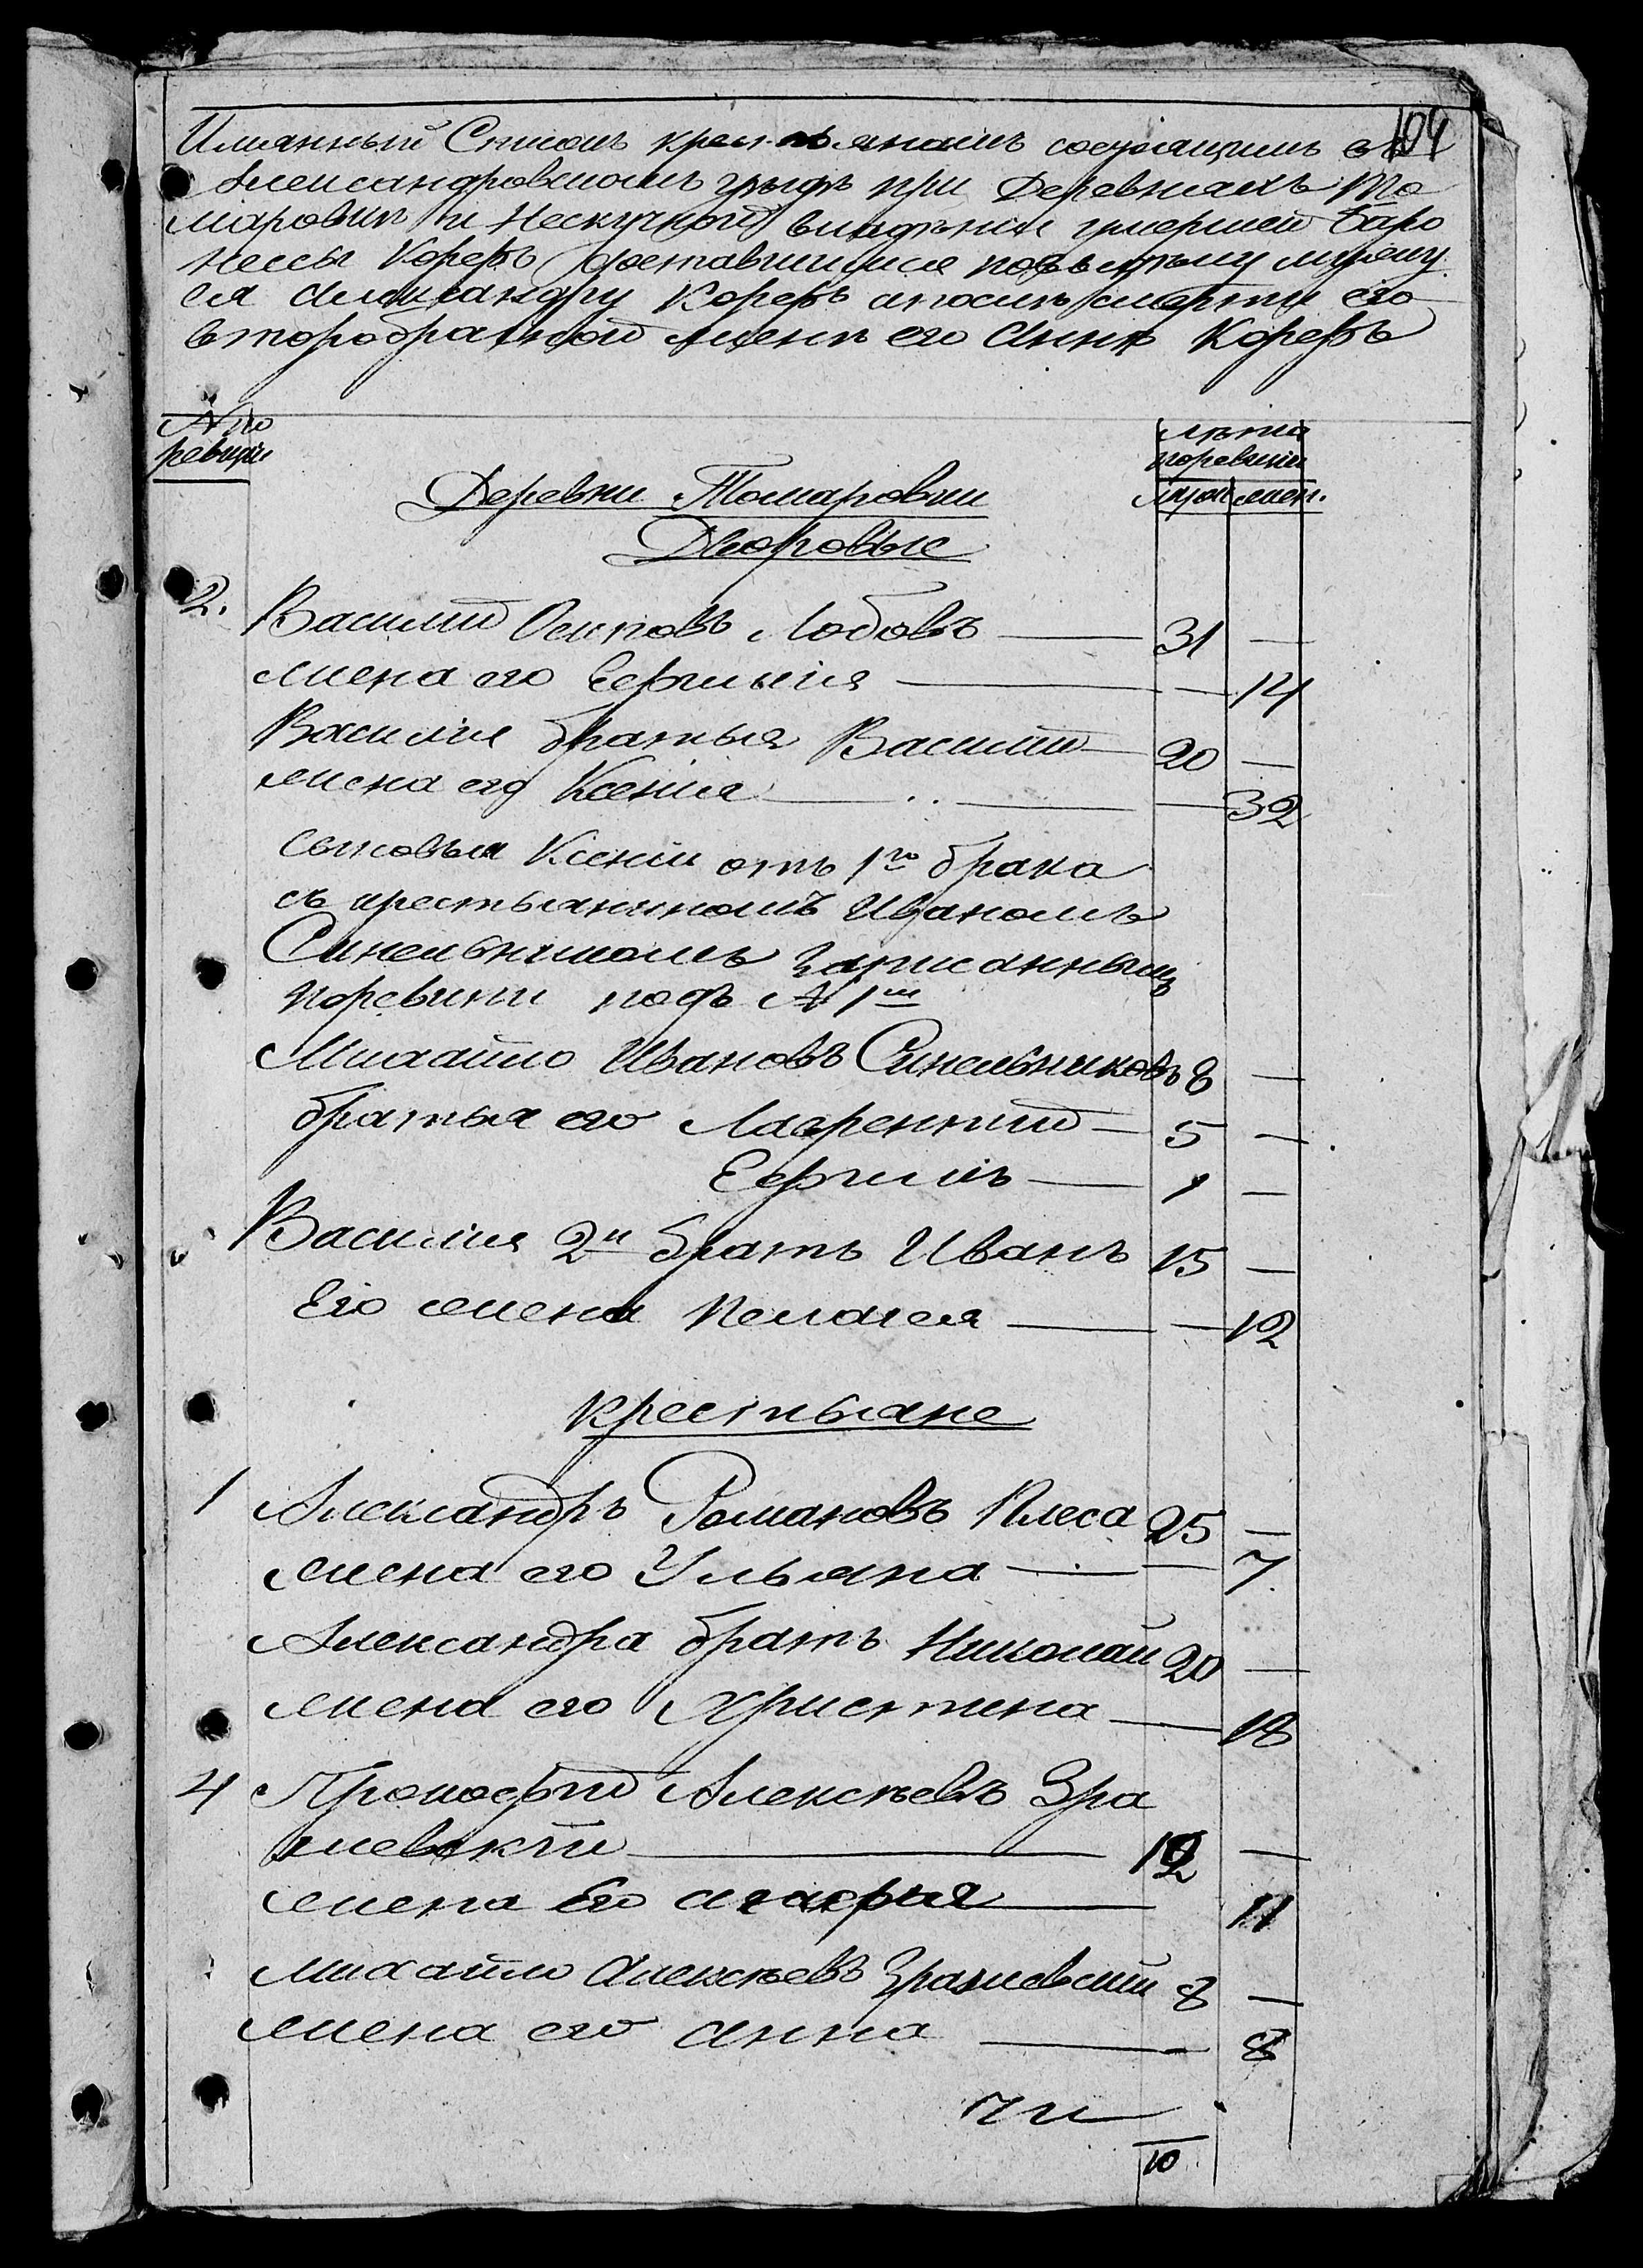 104
Имянный Списокъ крестьянамъ состоящимъ въ
Александровскомъ уѣздѣ при Деревняхъ То
маровки и Нескучной владѣнія умершей Баро
нессы Корфъ доставшимися мужу
ея Александру Корфъ а послѣ смерти его
второбрачной женѣ его Аннѣ Корфъ
№ по
ревизіи
лѣта
поревизіи
муж жен.
Деревни Томаровки
Дворовые
2. Василій Осиповъ Лобовъ 31 —
жена его Евфимия — 14
Василия братья Василий 20 —
жена его Ксения — 32
Сыновья Ксении отъ 1го брака
съ крестьяниномъ Иваномъ
Синельникомъ записаннымъ
поревизии подъ № 1м
Михайло Ивановъ Синельниковъ 8 —
братья его Лаврентий 5 —
Ефимъ 1 —
Василия 2й братъ Иванъ 15 —
Его жена Пелагея — 12
Крестьяне
1 Александръ Романовъ Плеса 25 —
жена его Ульяна — 7
Александра братъ Николай 20 —
жена его Христина — 18
4 Прокофий Алексѣевъ Зра
жевский 12 —
жена Его Агафья 11
Михайло Алексѣевъ Зражевский 8 —
жена его Анна — 8
10